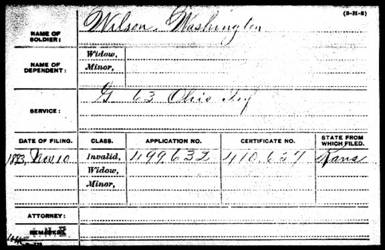 (3-H-8)
NAME OF SOLDIER: Wilson, Washington
NAME OF DEPENDENT: Widow,
Minor,
SERVICE: G 63 Ohio Inf
DATE OF FILING. CLASS. APPLICATION NO. CERTIFICATE NO. STATE FROM WHICH FILED.
1883, Nov 10 Invalid, 499.632 410.627 Kans
Widow,
Minor,
ATTORNEY: